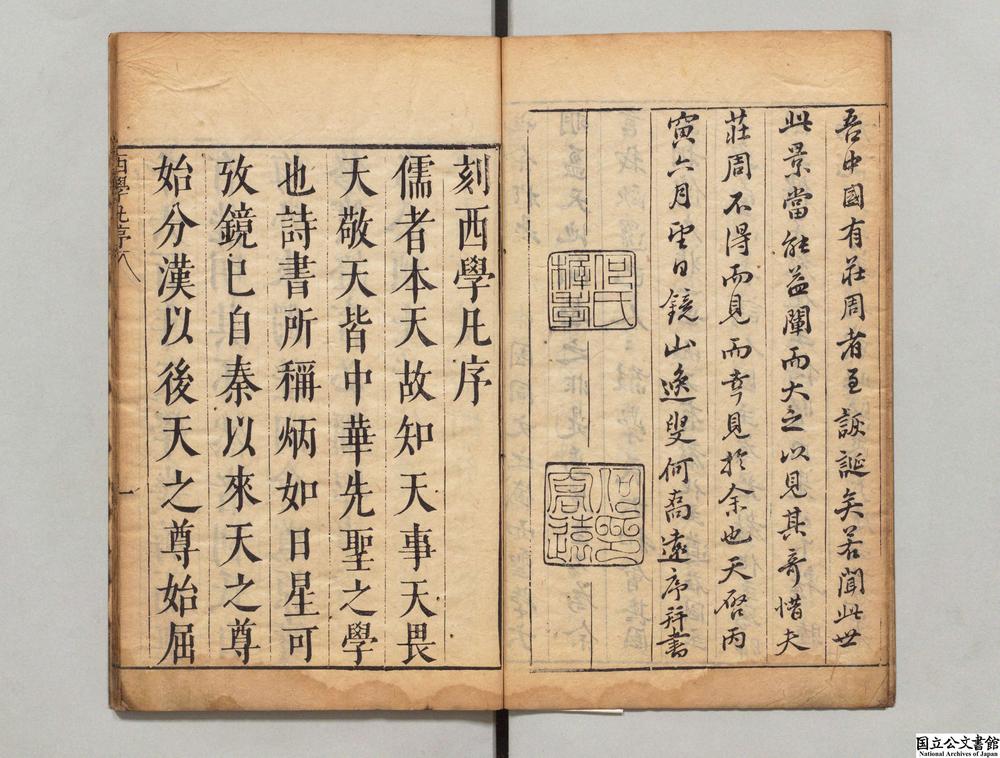 吾中國有莊周者至詼誕矣若聞此世
此景當能益闡而大之以見其奇惜夫
莊周不得而見而幸見於余也天啓丙
寅六月望日鏡山逸叟何喬遠序并書
何氏
穉孝
何印
喬遠
刻西學凡序
儒者本天故知天事天畏
天敬天皆中華先聖之學
也詩書所稱炳如日星可
攷鏡已自秦以來天之尊
始分漢以後天之尊始屈
西學凡序
一
国立公文書館
National Archives of Japan